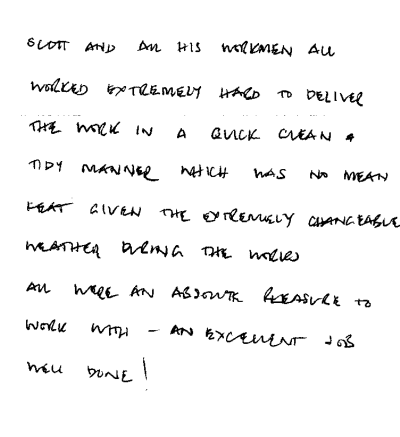 SCOTT AND ALL HIS WORKMEN ALL
WORKED EXTREMELY HARD TO DELIVER
THE WORK IN A QUICK CLEAN &
TIDY MANNER WHICH WAS NO MEAN
FEAT GIVEN THE EXTREMELY CHANGEABLE
WEATHER DURING THE WORKS
ALL WERE AN ABSOLUTE PLEASURE TO
WORK WITH – AN EXCELLENT JOB
WELL DONE!